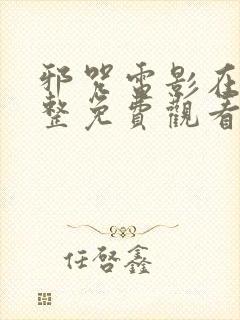 邪咒電影在
整免費觀看
任啓鑫